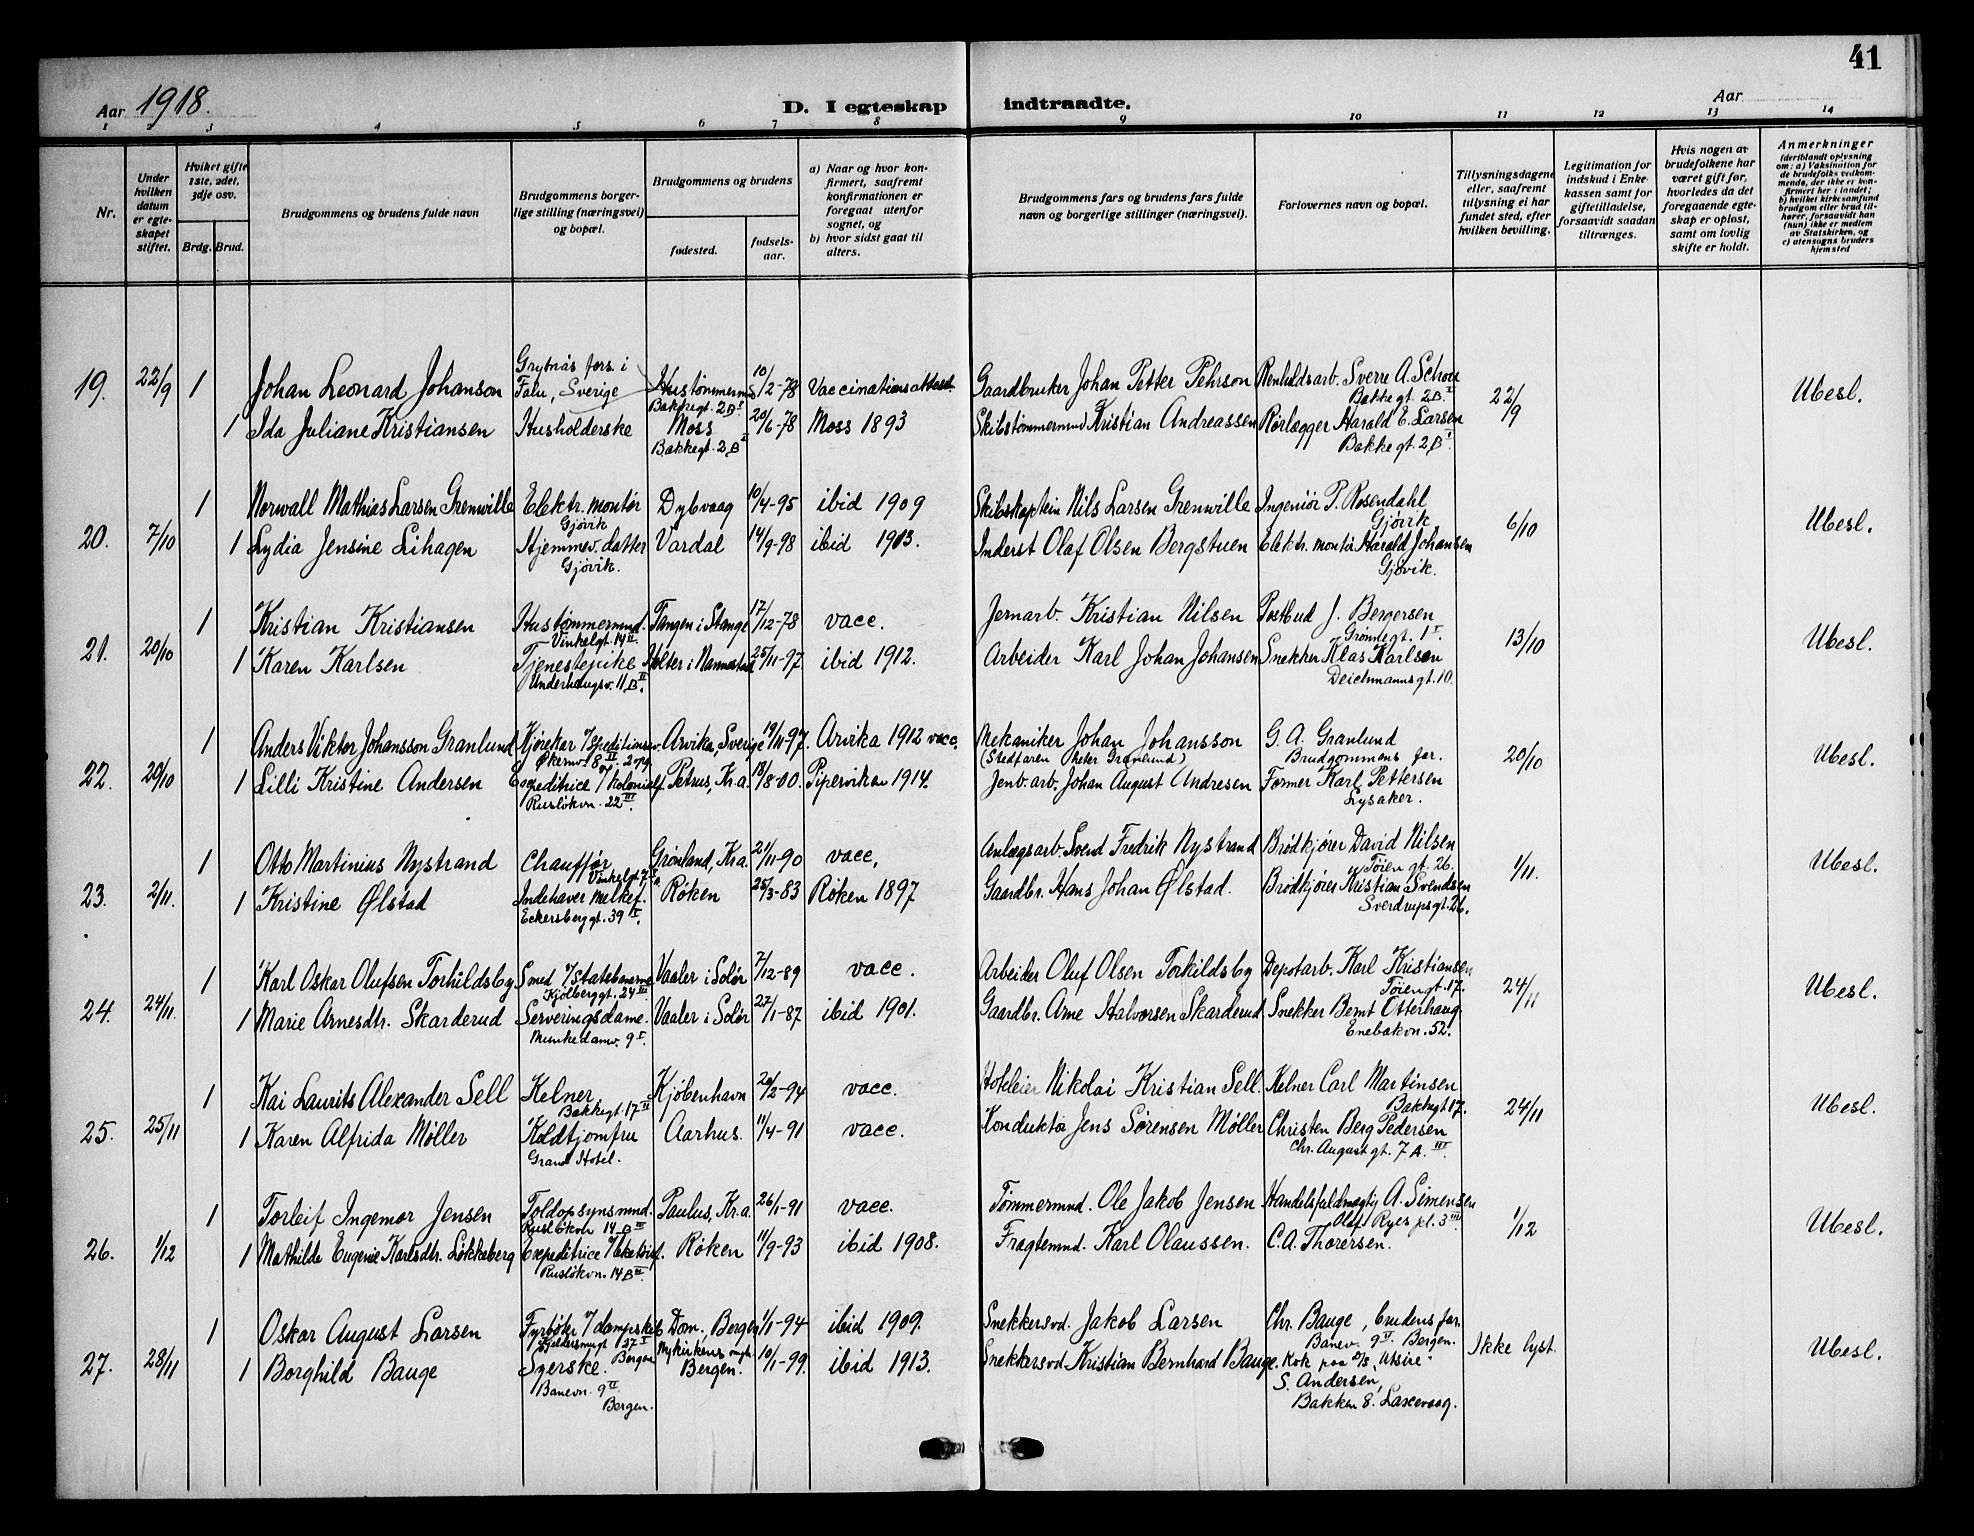 41
Aar 1918.
D. I egteskap indtraadte.
Aar
1 3 4 5 6 7 8 9 10 11 12 13 14
Nr.
Under hvilken datum er egteskapet stiftet.
Hvilket gifte 1ste, 2det, 3dje osv.
Brdg. Brud.
Brudgommens og brudens fulde navn
Brudgommens borgerlige stilling (næringsvei) og bopæl.
Brudgommens og brudens
fødested.
fødselsaar.
a) Naar og hvor konfirmert, saafremt konfirmationen er foregaat utenfor sognet, og
b) hvor sidst gaat til alters.
Brudgommens og brudens fars fulde navn og borgerlige stillinger (næringsvei).
Forlovernes navn og bopæl.
Tillysningsdagene eller, saafremt tillysning ei har fundet sted, efter hvilken bevilling.
Legitimation for indskud i Enkekassen samt for giftetilladelse, forsaavidt saadan tiltrænges.
Hvis nogen av brudefolkene har været gift før, hvorledes da det foregaaende egteskap er opløst, samt om lovlig skifte er holdt.
Anmerkninger
(deriblandt oplysning om: a) Vaksination for de brudefolks vedkommende, der ikke er konfirmert her i landet; b) hvilket kirkesamfund brudgom eller brud tilhører, forsaavidt han (hun) ikke er medlem av Statskirken, og c) utensogns bruders hjemsted
19. 22/9 1 Johan Leonard Johanson Grytnäs förs. i Falu, Sverige Hustømmermd Bakkegt. 2B I 10/2-78 Vaccinationsattest Gaardbruker Johan Petter Pehrson Renholdsarb. Sverre A. Schou Bakkegt. 2B. I 22/9 Ubesl.
1 Ida Juliane Kristiansen Husholderske Moss Bakkegt. 2B I 20/6-78 Moss 1893 Skibstømmermnd Kristian Andreassen Rørlægger Harald E. Larsen Bakkegt. 2B I
20. 7/10 1 Norwall Mathias Larsen Grenwille Elektr. montør Gjøvik Dybvaag 10/4-95 ibid 1909 Skibskaptein Nils Larsen Grenwille Ingeniør P. Rosendahl Gjøvik 6/10 Ubesl.
1 Lydia Jensine Lihagen Hjemmev. datter Gjøvik. Vardal 14/9-98 ibid 1913. Inderst Olaf Olsen Bergstuen Elektr. montør Harald Johansen Gjøvik.
21. 20/10 1 Kristian Kristiansen Hustømmermnd. Vinkelgt. 14 II Tangen i Stange 17/12-78 vacc. Jernarb. Kristian Nilsen Postbud J. Bergersen Grønlegt. 1 I. 13/10 Ubesl.
1 Karen Karlsen Tjenestepike Underhaugsv. 11B II. Holter i Nannestad 25/11-97 ibid 1912. Arbeider Karl Johan Johansen Snekker Klas Karlsen Deichmannsgt. 10.
22. 20/10 1 Anders Viktor Johansson Granlund Kjørekar v/Speditionsv. Økernv. 8 II. Arvika, Sverige 19/11-97. Arvika 1912 vacc. Mekaniker Johan Johansson (Stedfaren Peter Granlund) G. A. Granlund Brudgommens far. 20/10 Ubesl.
1 Lilli Kristine Andersen Expeditrice v/Kolonialf. Rusløkvn. 22 III. Petrus, Kr.a. 18/8-00. Pipervika 1914. Jernb. arb. Johan August Andresen Former Karl Pettersen Lysaker.
23. 2/11. 1 Otto Martinius Nystrand Chauffør Vinkelgt 7 Grønland, Kr.a. 21/11-90 vacc. Anlægsarb. Svend Fredrik Nystrand Brødkjører David Nilsen Tøiengt. 26. 1/11. Ubesl.
1 Kristine Ølstad Indehaver Melkef. Eckersberggt. 39 IV. Røken 25/3-83 Røken 1897 Gaardbr. Hans Johan Ølstad. Brødkjører Kristian Svendsen Sverdrupsgt. 26.
24. 24/11. 1 Karl Oskar Olufsen Torkildsby Smed v/Statsbanerne Kjølberggt. 24 III. Vaaler i Solør 7/12-89 vacc. Arbeider Oluf Olsen Torkildsby Depotarb. Karl Kristiansen Tøiengt. 17. 24/11 Ubesl.
1 Marie Arnesdtr. Skarderud Serveringsdame. Munkedamv. 9 I. Vaaler i Solør 27/1-87 ibid 1901. Gaardbr. Arne Halvorsen Skarderud Snekker Bernt Otterhaug. Enebakvn. 52.
25. 25/11 1 Kai Laurits Alexander Sell Kelner. Bakkegt 17 II Kjöbenhavn 20/2-94 vacc. Hoteleier Nikolai Kristian Sell. Kelner Carl Martinsen Bakkegt 17. 24/11 Ubesl.
1 Karen Alfrida Møller Koldtjomfru Grand Hotel. Aarhus. 11/4-91 vacc. Konduktør Jens Sørensen Møller Christen Berg Pedersen Chr. Augustgt. 7A. III.
26. 1/12 1 Torleif Ingemar Jensen Toldopsynsmnd. Rusløkvn 14B III Paulus, Kr.a. 26/1-91 vacc. Tømmermnd. Ole Jakob Jensen Handelsfuldmegtig A. Simensen Olaf Ryes pl. 3 III 1/12 Ubesl.
1 Mathilde Eugenie Karlsdtr. Løkkeberg Expeditrice Rusløkvn. 14B III. Røken 11/9-93 ibid 1908. Fragtemnd. Karl Olaussen. C. A. Thoresen.
27. 28/11 1 Oskar August Larsen Fyrbøter v/dampskib Bergen Dom., Bergen 1/1-94 ibid 1909. Snekkersvd. Jakob Larsen Chr. Bauge, brudens far. Banev. 9 II. Bergen. Ikke lyst. Ubesl.
1 Borghild Bauge Syerske. Banevn. 9 II Bergen. Nykirkens mgh. Bergen. 10/1-99. ibid 1913. Snekkersvd. Kristian Bernhard Bauge. Kok paa D/S Utsire S. Andersen, Bakken 8. Laxevaag.